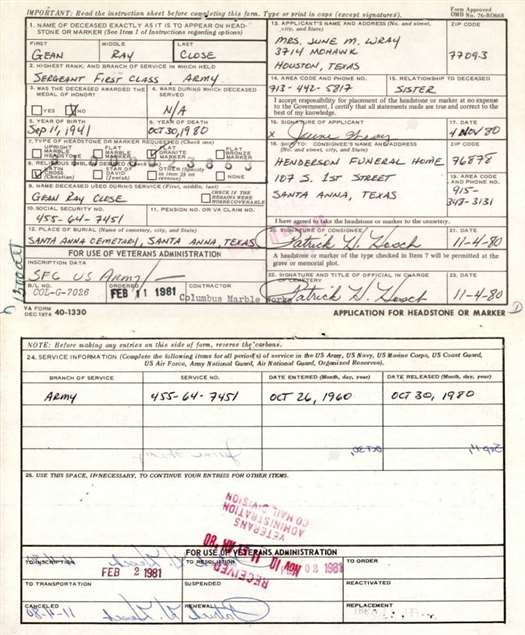 IMPORTANT: Read the instruction sheet before completing this form. Type or print in caps (except signatures).
Form Approved
OMB No. 76-R0668
1. NAME OF DECEASED EXACTLY AS IT IS TO APPEAR ON HEAD-
STONE OR MARKER (See Item 1 of Instructions regarding options)
FIRST MIDDLE LAST
GEAN RAY CLOSE
2. HIGHEST RANK, AND BRANCH OF SERVICE IN WHICH HELD
SERGEANT FIRST CLASS ARMY
3. WAS THE DECEASED AWARDED THE
MEDAL OF HONOR?
YES NO
4. WARS DURING WHICH DECEASED
SERVED
N/A
5. YEAR OF BIRTH
SEP 11, 1941
6. YEAR OF DEATH
OCT 30, 1980
7. TYPE OF HEADSTONE OR MARKER REQUESTED (Check one)
UPRIGHT
MARBLE
HEADSTONE
FLAT
MARBLE
FLAT
GRANITE
MARKER
FLAT
BRONZE
MARKER
LATIN
CROSS
(Christian)
STAR
OF DAVID
OTHER (Specify
NONE
9. NAME DECEASED USED DURING SERVICE (First, middle, last)
GEAN RAY CLOSE
CHECK IF
REMAINS WERE
10. SOCIAL SECURITY NO.
455-64-7451
11. PENSION NO. OR VA CLAIM NO.
12. PLACE OF BURIAL (Name of cemetery, city, and State)
SANTA ANNA CEMETARY, SANTA ANNA, TEXAS
FOR USE OF VETERANS ADMINISTRATION
INSCRIPTION DATA
SFC US ARMY
B/L NO.
COL-G-7026
ORDERED
FEB 11 1981
CONTRACTOR
Columbus Marble Works
13. APPLICANT'S NAME AND ADDRESS (No. and street,
city, and State)
ZIP CODE
MRS, JUNE M. WRAY
3714 MOHAWK
HOUSTON, TEXAS
77093
14. AREA CODE AND PHONE NO.
713-442-5817
15. RELATIONSHIP TO DECEASED
SISTER
I accept responsibility for placement of the headstone or marker at no expense
to the Government. I certify that all statements made are true and correct to the
best of my knowledge.
16. SIGNATURE OF APPLICANT
X June Wray
17. DATE
4 NOV 80
18. SHIP TO: CONSIGNEE'S NAME AND ADDRESS
(No. and street, city, and State)
ZIP CODE
HENDERSON FUNERAL HOME
76878
107 S. 1ST STREET
SANTA ANNA, TEXAS
19. AREA CODE
AND PHONE NO.
915-
348-3131
I have agreed to take the headstone or marker to the cemetery.
20. SIGNATURE OF CONSIGNEE
21. DATE
11-4-80
A headstone or marker of the type checked in Item 7 will be permitted at the
grave or memorial plot.
22. SIGNATURE AND TITLE OF OFFICIAL IN CHARGE
OF CEMETERY
23. DATE
11-4-80
VA FORM
DEC 1974 40-1330
APPLICATION FOR HEADSTONE OR MARKER
NOTE: Before making any entries on this side of form, reverse the carbons.
24. SERVICE INFORMATION (Complete the following items for all period(s) of service in the US Army, US Navy, US Marine Corps, US Coast Guard,
US Air Force, Army National Guard, Air National Guard, Organized Reserves).
BRANCH OF SERVICE SERVICE NO. DATE ENTERED (Month, day, year) DATE RELEASED (Month, day, year)
ARMY 455-64-7451 OCT 26, 1960 OCT 30, 1980
25. USE THIS SPACE, IF NECESSARY, TO CONTINUE YOUR ENTRIES FOR OTHER ITEMS.
VETERANS
ADMINISTRATION
CO MAIL DIVISION
RECEIVED
FOR USE OF VETERANS ADMINISTRATION
TO INSCRIPTION TO RESOLUTION TO ORDER
FEB 2 1981
TO TRANSPORTATION SUSPENDED REACTIVATED
CANCELED RENEWAL REPLACEMENT